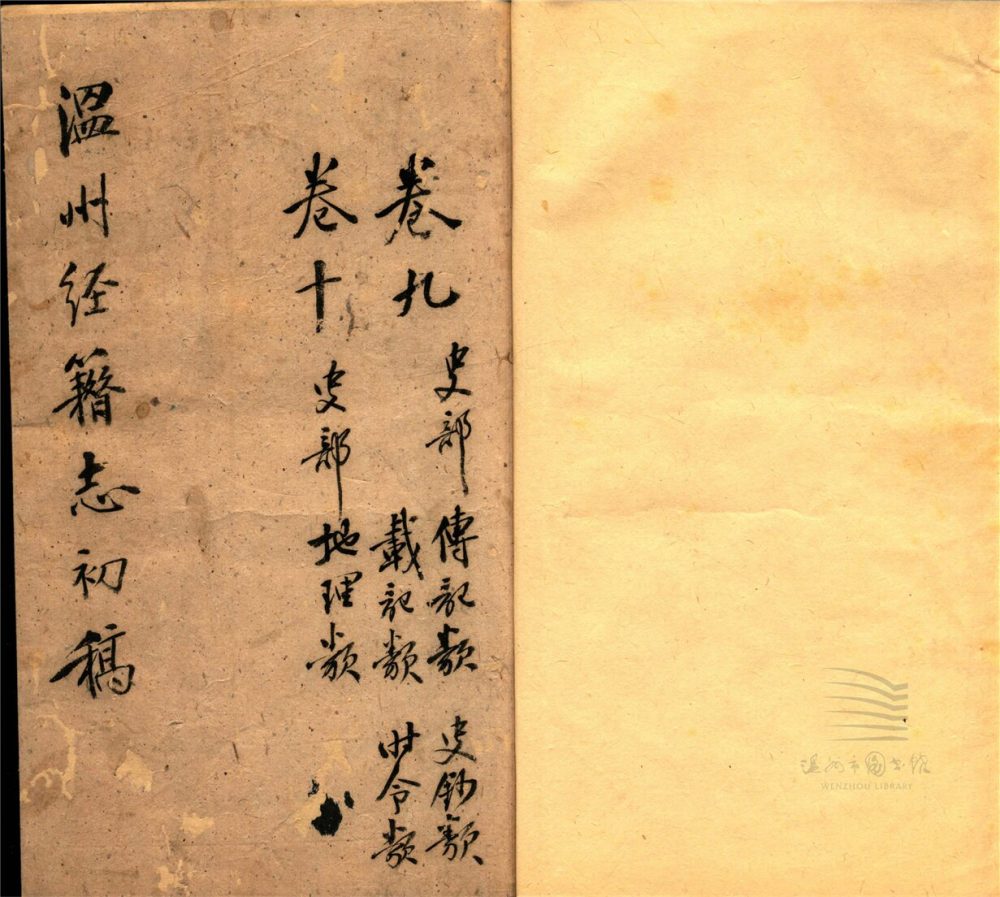 卷九 史部 傳記類 史鈔類
載記類 时令類
卷十 史部 地理類
溫州经籍志初稿
温州市图书馆
WENZHOU LIBRARY